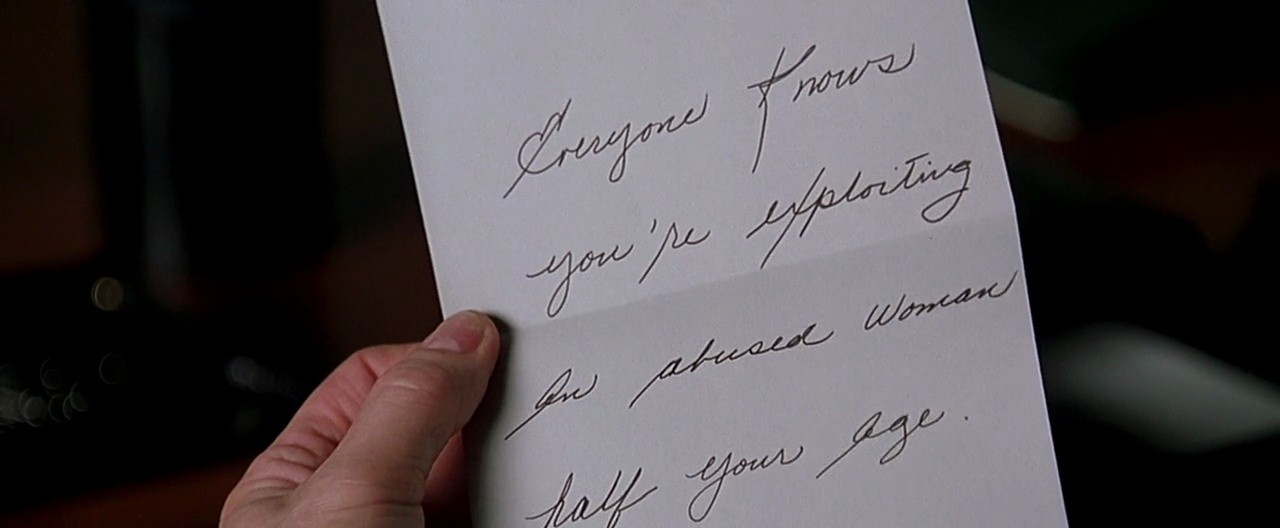 Everyone Knows
you're exploiting
An abused Woman
half your Age.